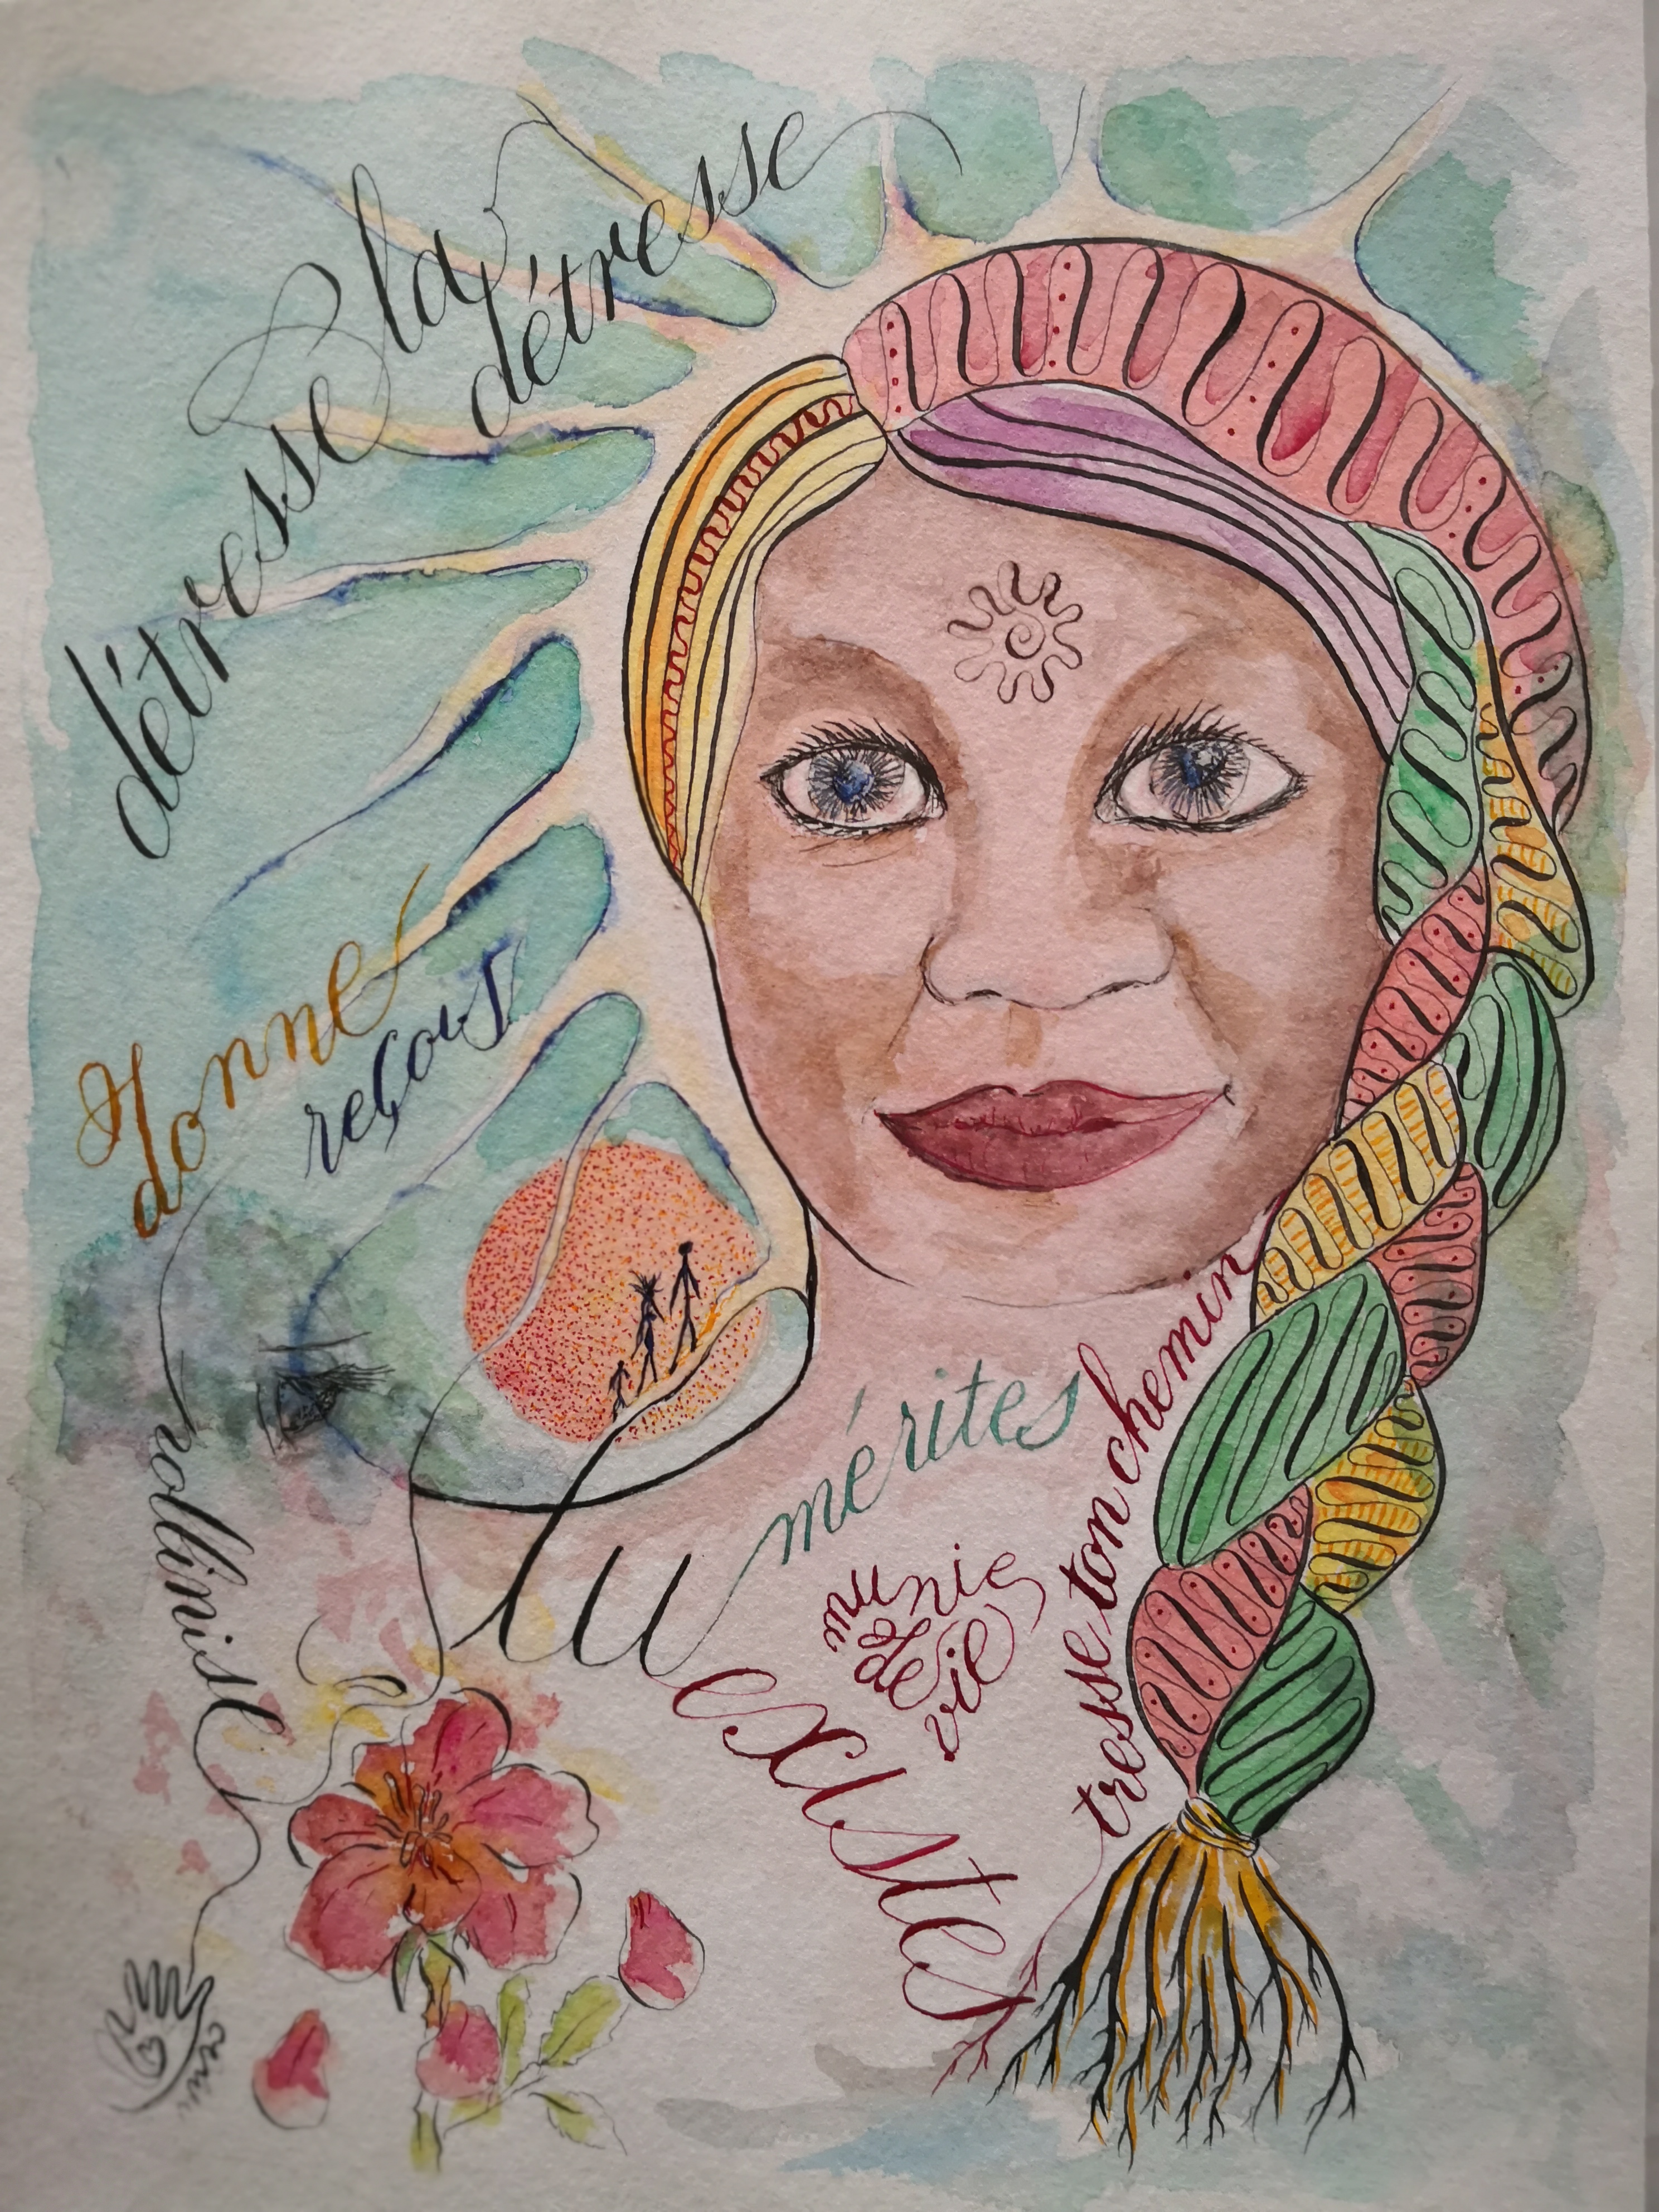 détresse la
détresse
donne
reçois
pollinise
tu
mérites
munie
de
vie
existes
tresse ton chemin